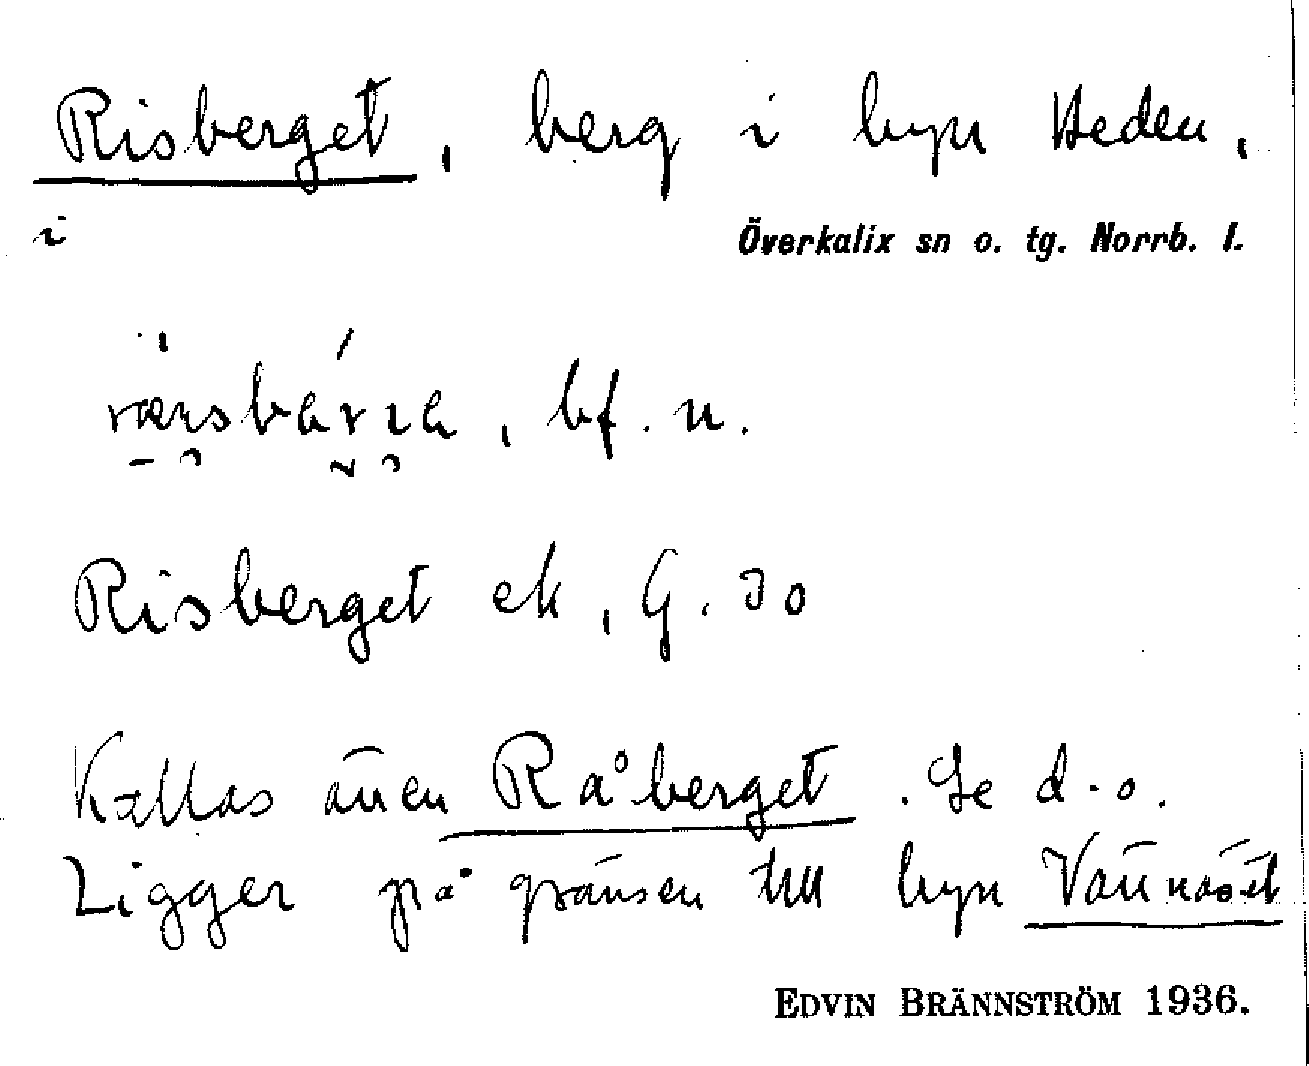 Risberget, berg i byn Heden,
i Överkalix sn o. tg. Norrb. l.
bf. n.
Risberget ek, G. 30
Kallas även Råberget. Se d.o.
Ligger på gränsen till byn Vännäset
EDVIN BRÄNNSTRÖM 1936.